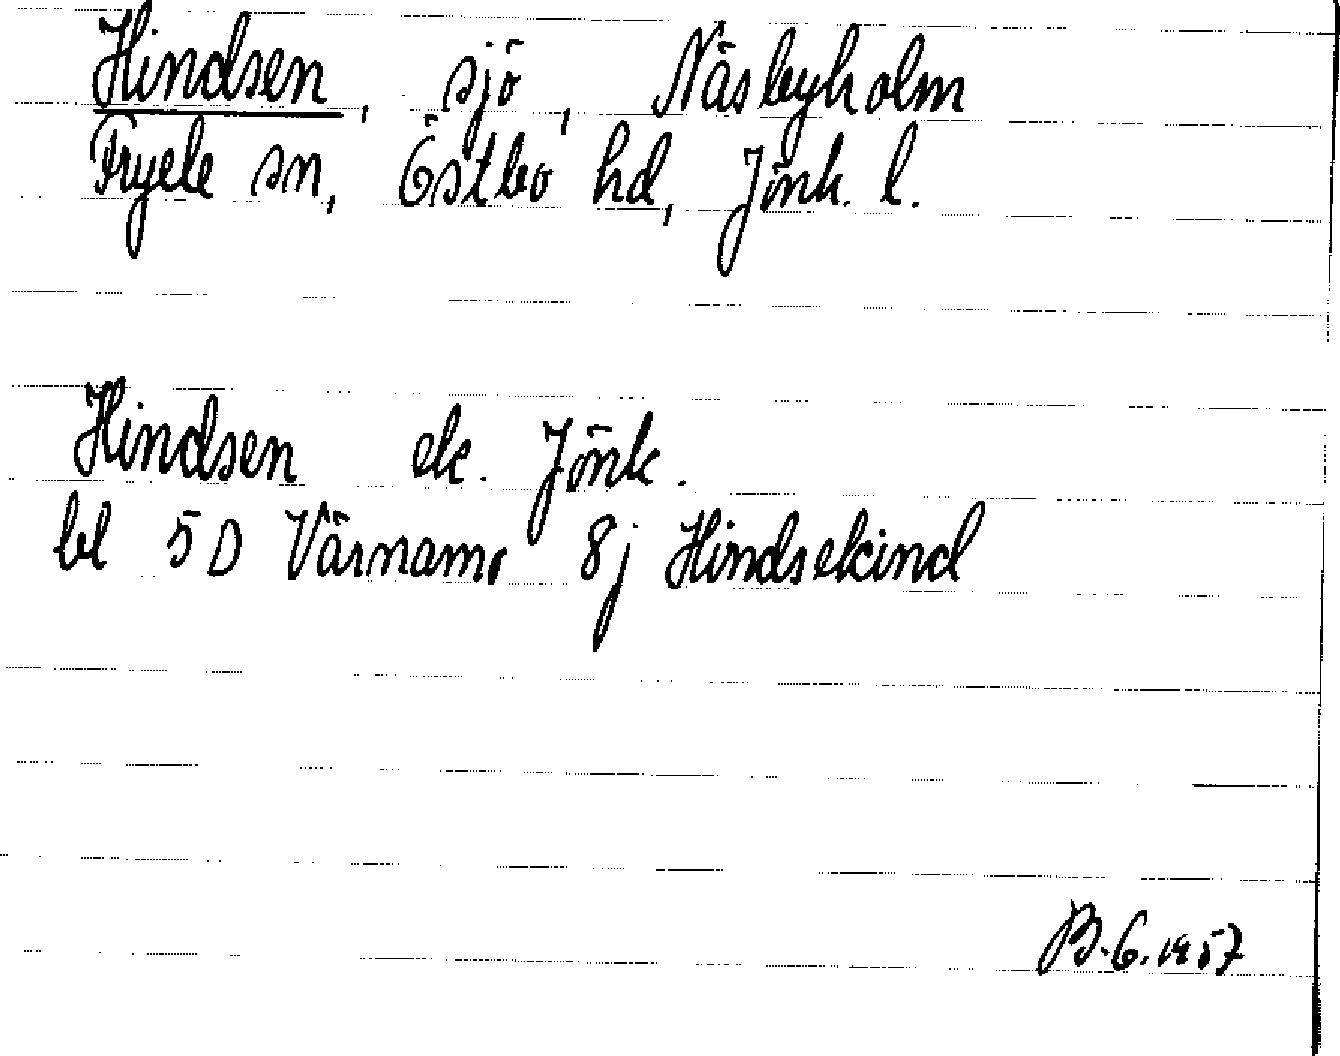 Hindsen, sjö, Näsbyholm
Fryele sn, Östbo hd, Jönk. l.
Hindsen ek. Jönk.
bl 5D Värnamo 8j Hindsekind
B.G. 1957